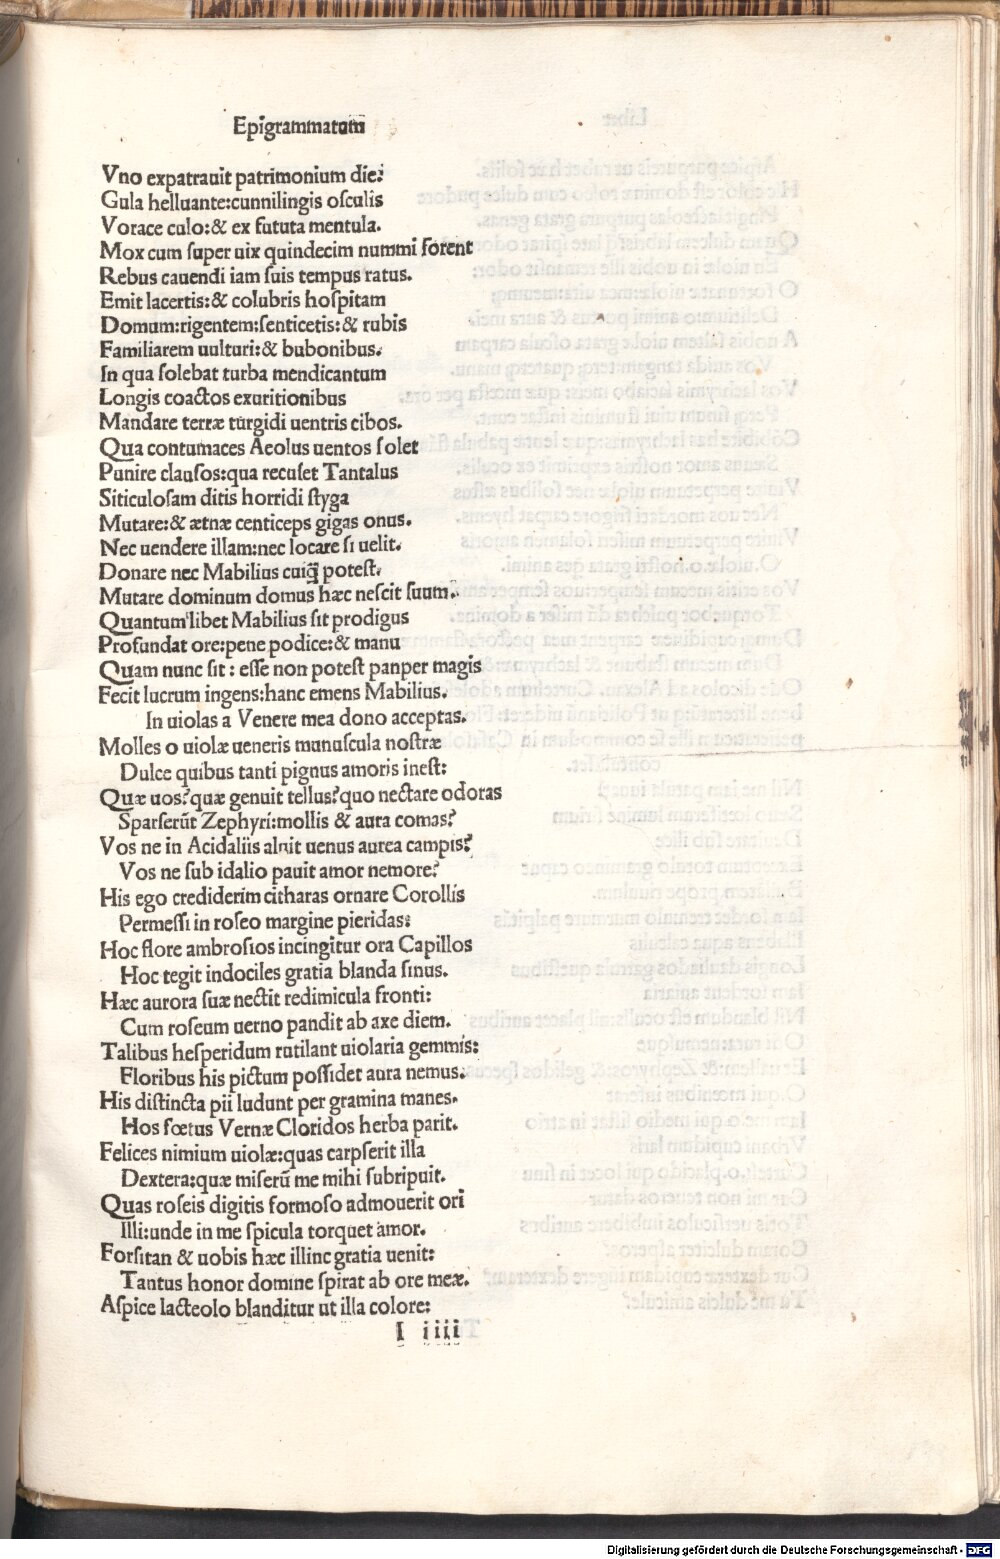 Epigrammatum
Vno expatrauit patrimonium die?
Gula helluante:cunnilingis osculis
Vorace culo:& ex fututa mentula.
Mox cum super uix quindecim nummi forent
Rebus cauendi iam suis tempus ratus.
Emit lacertis:& colubris hospitam
Domum:rigentem:senticetis:& rubis
Familiarem uulturi:& bubonibus.
In qua solebat turba mendicantum
Longis coactos exuritionibus
Mandare terræ turgidi uentris cibos.
Qua contumaces Aeolus uentos solet
Punire clausos:qua recuset Tantalus
Siticulosam ditis horridi styga
Mutare:& ætnæ centiceps gigas onus.
Nec uendere illam:nec locare si uelit.
Donare nec Mabilius cuiq̃ potest.
Mutare dominum domus hæc nescit suum.
Quantum libet Mabilius sit prodigus
Profundat ore:pene podice:& manu
Quam nunc sit: esse non potest panper magis
Fecit lucrum ingens:hanc emens Mabilius.
In uiolas a Venere mea dono acceptas.
Molles o uiolæ ueneris munuscula nostræ
Dulce quibus tanti pignus amoris inest:
Quæ uos?quæ genuit tellus?quo nectare odoras
Sparserūt Zephyri:mollis & aura comas?
Vos ne in Acidaliis aluit uenus aurea campis?
Vos ne sub idalio pauit amor nemore?
His ego crediderim citharas ornare Corollis
Permessi in roseo margine pieridas:
Hoc flore ambrosios incingitur ora Capillos
Hoc tegit indociles gratia blanda sinus.
Hæc aurora suæ nectit redimicula fronti:
Cum roseum uerno pandit ab axe diem.
Talibus hesperidum rutilant uiolaria gemmis:
Floribus his pictum possidet aura nemus.
His distincta pii ludunt per gramina manes.
Hos fœtus Vernæ Cloridos herba parit.
Felices nimium uiolæ:quas carpserit illa
Dextera:quæ miserū me mihi subripuit.
Quas roseis digitis formoso admouerit ori
Illi:unde in me spicula torquet amor.
Forsitan & uobis hæc illinc gratia uenit:
Tantus honor domine spirat ab ore meæ.
Aspice lacteolo blanditur ut illa colore:
I iiii
Digitalisierung gefördert durch die Deutsche Forschungsgemeinschaft - DFG